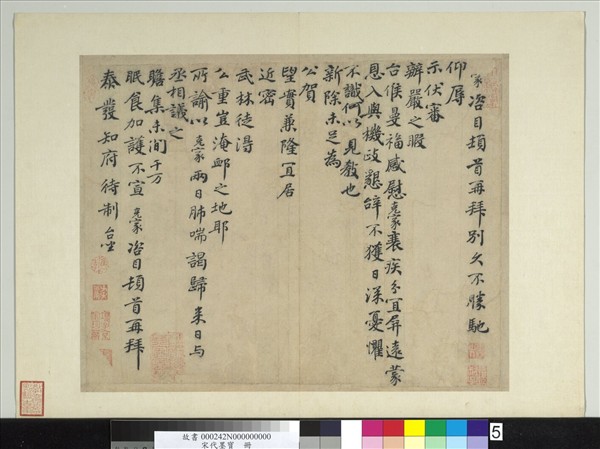 冡咨目頓首再拜別久不勝馳
仰辱
示伏審
辦嚴之暇
台候曼福感慰冡衰疾分宜屏遠蒙
恩入輿機政懇辭不獲日深憂懼
不識何以見教也
新除未足為
公賀
望實兼隆宜居
近密
武林徒得
么重豈淹卹之地耶
所諭以冡兩日肺喘謁歸来日与
丞相議之
瞻集未間千万
眠食加護不宣 咨目頓首再拜
泰發知府待制台坐
故書 000242N000000000
宋代墨寶 冊
5